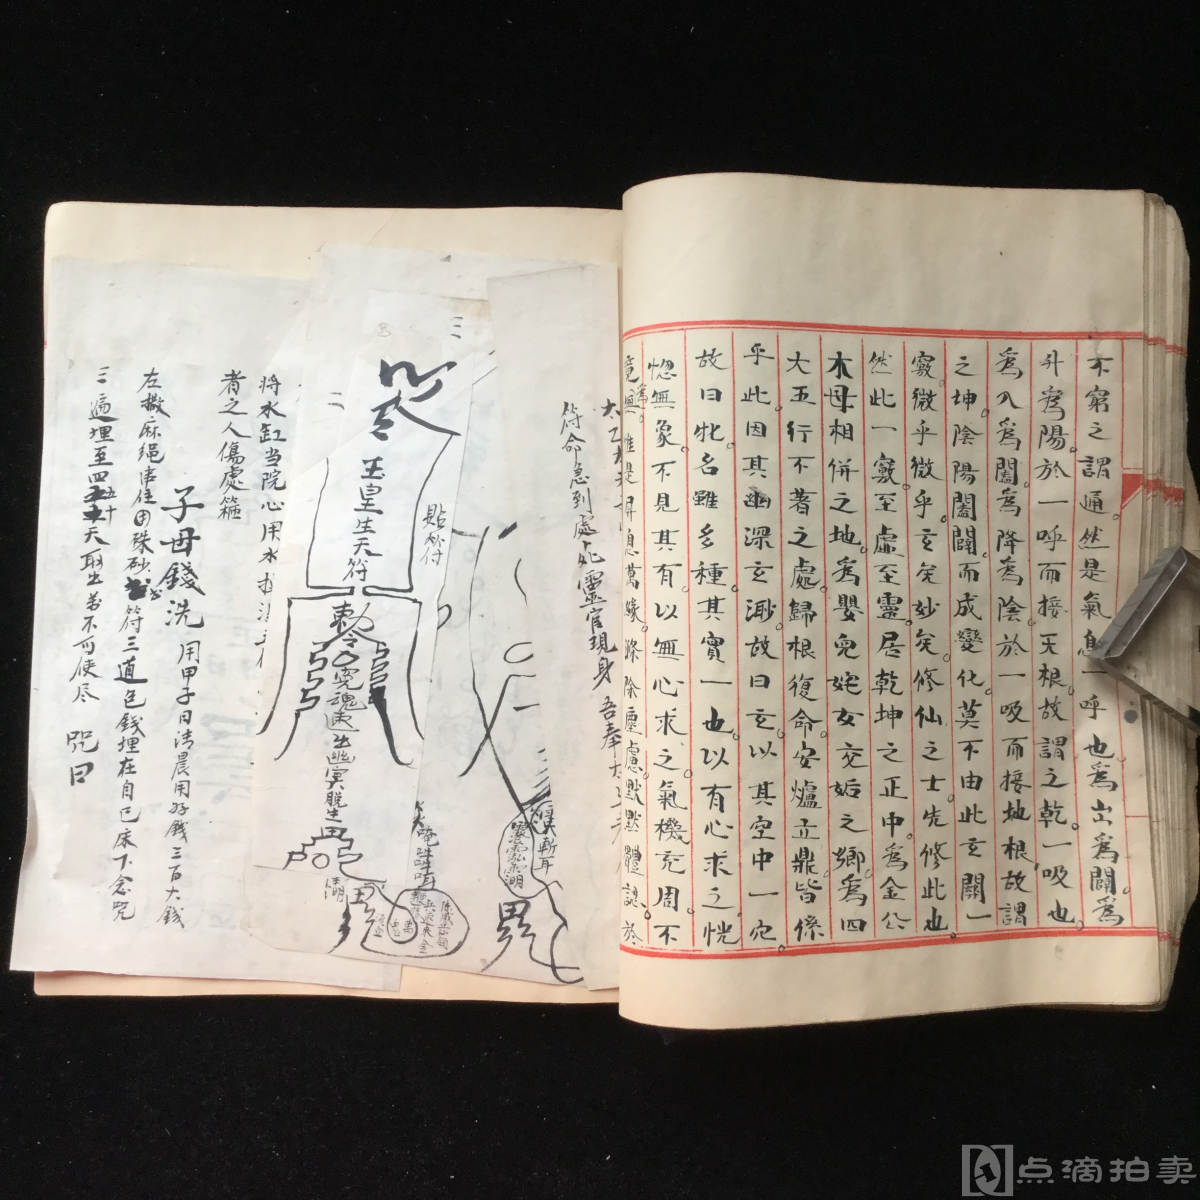 不窮之謂通然是氣息一呼也為出為闢為
升為陽於一呼而接天根故謂之乾吸也
為入為闔為降為陰於一吸而接地根故謂
之坤陰陽闔闢而成變化莫不由此玄關一
竅微乎微乎玄矣妙矣修仙之士先修此也
然此一竅至虛至靈居乾坤之正中為金公
木母相併之地為嬰兒姹女交姤之鄉為四
大五行不著之處歸根復命安爐立鼎皆係
乎此因其幽深玄渺故曰玄以其空中一穴
故曰牝名雖多種其實一也以有心求之恍
惚無象不見其有以無心求之氣機充周不
竟無為惟是屏息萬緣滌除塵慮默默體認於
符命急到處 靈官現身 吾奉
貼符
玉皇生天符
敕令 魂速出幽冥脫生
將水缸当院心用水
者之人傷處
子母錢洗 用甲子日清晨用好錢三百大錢
左搬麻绳串住用珠砂書符三道色錢埋在自己床下念咒
三遍埋至四五十天取出花不可使尽 咒曰
点滴拍卖